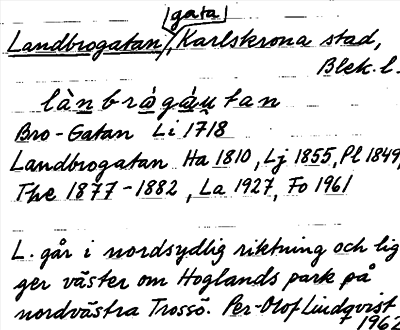 gata
Landbrogatan, Karlskrona stad,
Blek. l.
làn brágatan
Bro-Gatan Li 1718
Landbrogatan Ha 1810, Lj 1855, Pl 1849,
The 1877-1882, La 1927, Fo 1961
L. går i nordsydlig riktning och lig
ger väster om Hoglands park på
nordvästra Trossö. Per-Olof Lindqvist
1962